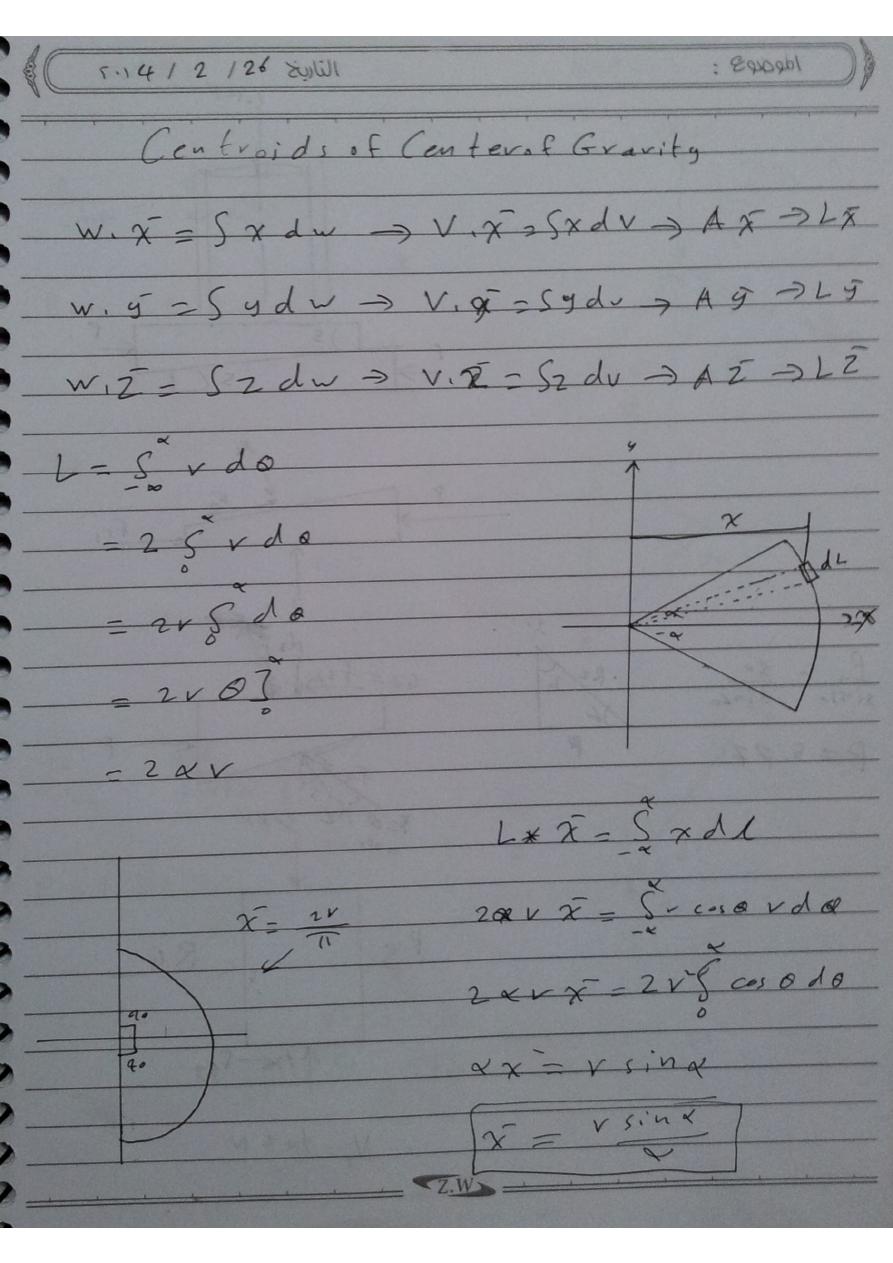 الموضوع :
التاريخ 26 / 2 / ٢٠١4
Centroids of Center of Gravity
W. x̄ = ∫ x dw → V. x̄ = ∫x dv → A x̄ → L x̄
W. ȳ = ∫ y dw → V. ȳ = ∫y dv → A ȳ → L ȳ
W. z̄ = ∫ z dw → V. z̄ = ∫z dv → A z̄ → L z̄
L = ∫_{-∞}^{α} r dθ
= 2 ∫_0^α r dθ
= 2r ∫_0^α dθ
= 2r θ]_0^α
= 2 α r
y
x
dL
α
-α
x
L * x̄ = ∫_{-α}^{α} x dl
2α r x̄ = ∫_{-α}^{α} r cos θ r dθ
2 α r x̄ = 2 r² ∫_0^α cos θ dθ
α x̄ = r sin α
x̄ = r sin α / α
x̄ = 2r / π
90
90
Z.W